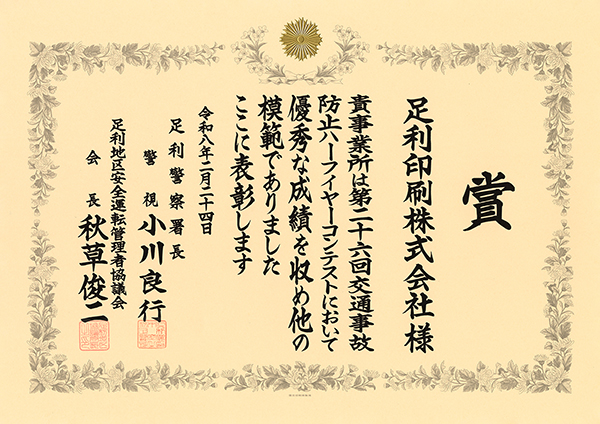 賞
足利印刷株式会社様
貴事業所は第二十六回交通事故
防止ハーフイヤーコンテストにおいて
優秀な成績を収め他の
模範でありました
ここに表彰します
令和八年二月二十四日
足利警察署長
警視 小川良行
足利地区安全運転管理者協議会
会長 秋草俊二